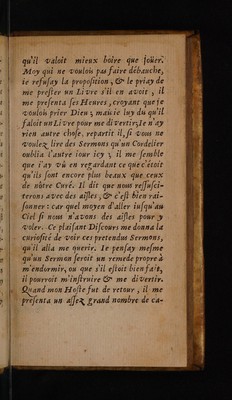 qu'il valoit mieux boire que joüer.
Moy qui ne voulois pas faire débauche,
ie refusay la proposition, & le priay de
me prester un Livre s'il en avoit, il
me presenta ses Heures, croyant que je
voulois prier Dieu; mais ie luy dis qu'il
faloit un Livre pour me divertir; Ie n'ay
rien autre chose, repartit il, si vous ne
voulez lire des Sermons qu'un Cordelier
oublia l'autre iour icy; il me semble
que i'ay vû en regardant ce que c'étoit
qu'ils sont encore plus beaux que ceux
de nôtre Curé. Il dit que nous ressusci-
terons avec des aisles, & c'est bien rai-
sonner: car quel moyen d'aller iusqu'au
Ciel si nous n'avons des aisles pour y
voler. Ce plaisant Discours me donna la
curiosité de voir ces pretendus Sermons,
qu'il alla me querir. Ie pensay mesme
qu'un Sermon seroit un remede propre à
m'endormir, ou que s'il estoit bien fait,
il pourroit m'instruire & me divertir.
Quand mon Hoste fut de retour, il me
presenta un assez grand nombre de ca-